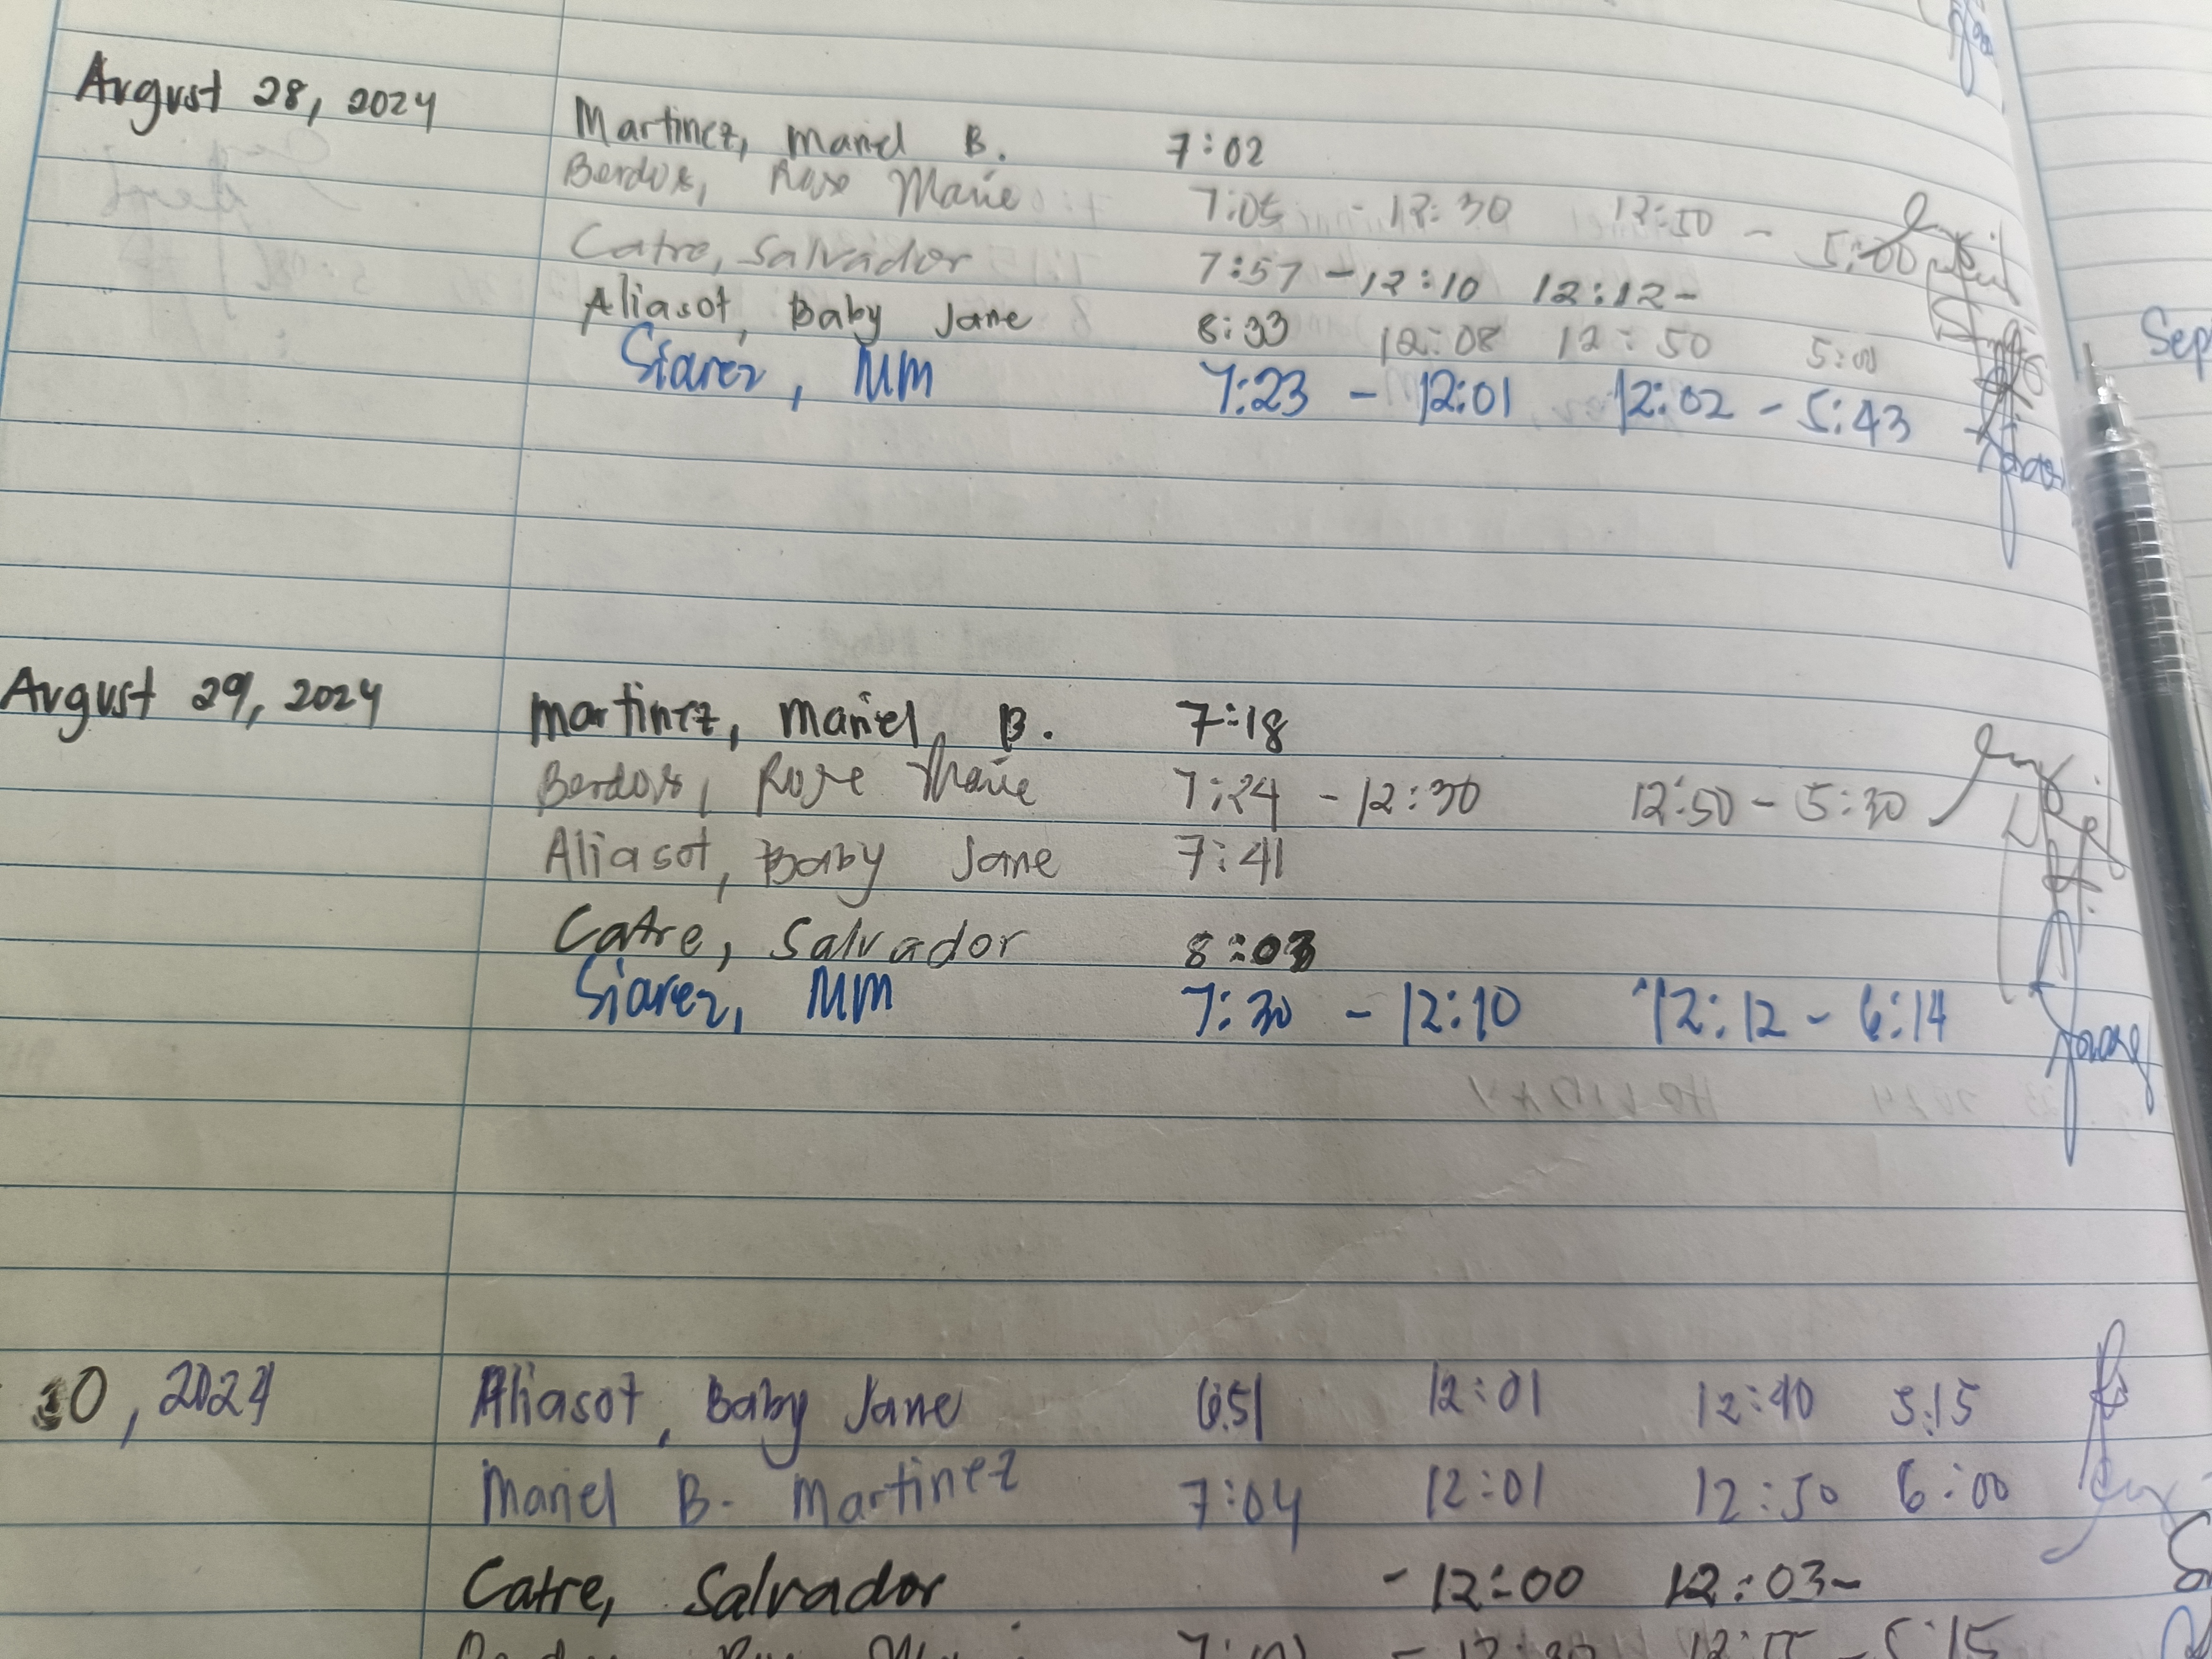 August 28, 2024 Martinez, Mariel B. 7:02
Berdos, Rose Marie 7:05 - 12:30 12:50 - 5:00
Catre, Salvador 7:57 - 12:10 12:12-
Aliasot, Baby Jane 8:33 12:08 12:50 5:00
Siarez, MM 7:23 - 12:01 12:02 - 5:43
Sep
August 29, 2024 Martinez, Mariel B. 7:18
Berdos, Rose Marie 7:24 - 12:30 12:50 - 5:30
Aliasot, Baby Jane 7:41
Catre, Salvador 8:03
Siarez, MM 7:30 - 12:10 12:12 - 6:14
30, 2024 Aliasot, Baby Jane 6:51 12:01 12:40 5:15
Mariel B. Martinez 7:04 12:01 12:50 6:00
Catre, Salvador - 12:00 12:03-
5:15